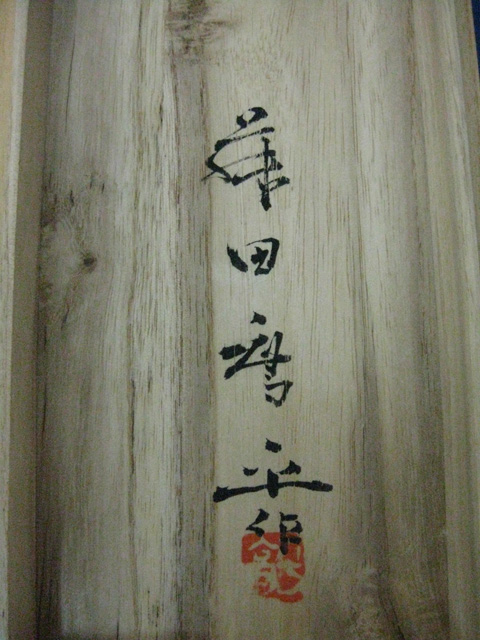 藤田喬平作